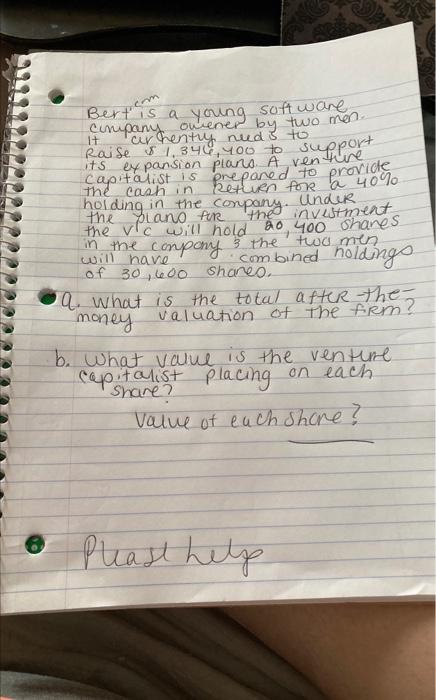 Bert'ern is a young software
company owener by two men.
It currently needs to
Raise $1,346,400 to support
its expansion plans. A venture
capitalist is prepared to provide
the cash in Return for a 40%
holding in the company. Under
the plans for the investment
the V/C will hold 20,400 shares
in the company & the two men
will have combined holdings
of 30,600 shares.
a. What is the total after-the-
money valuation of the firm?
b. What value is the venture
capitalist placing on each
share?
Value of each share?
Please help